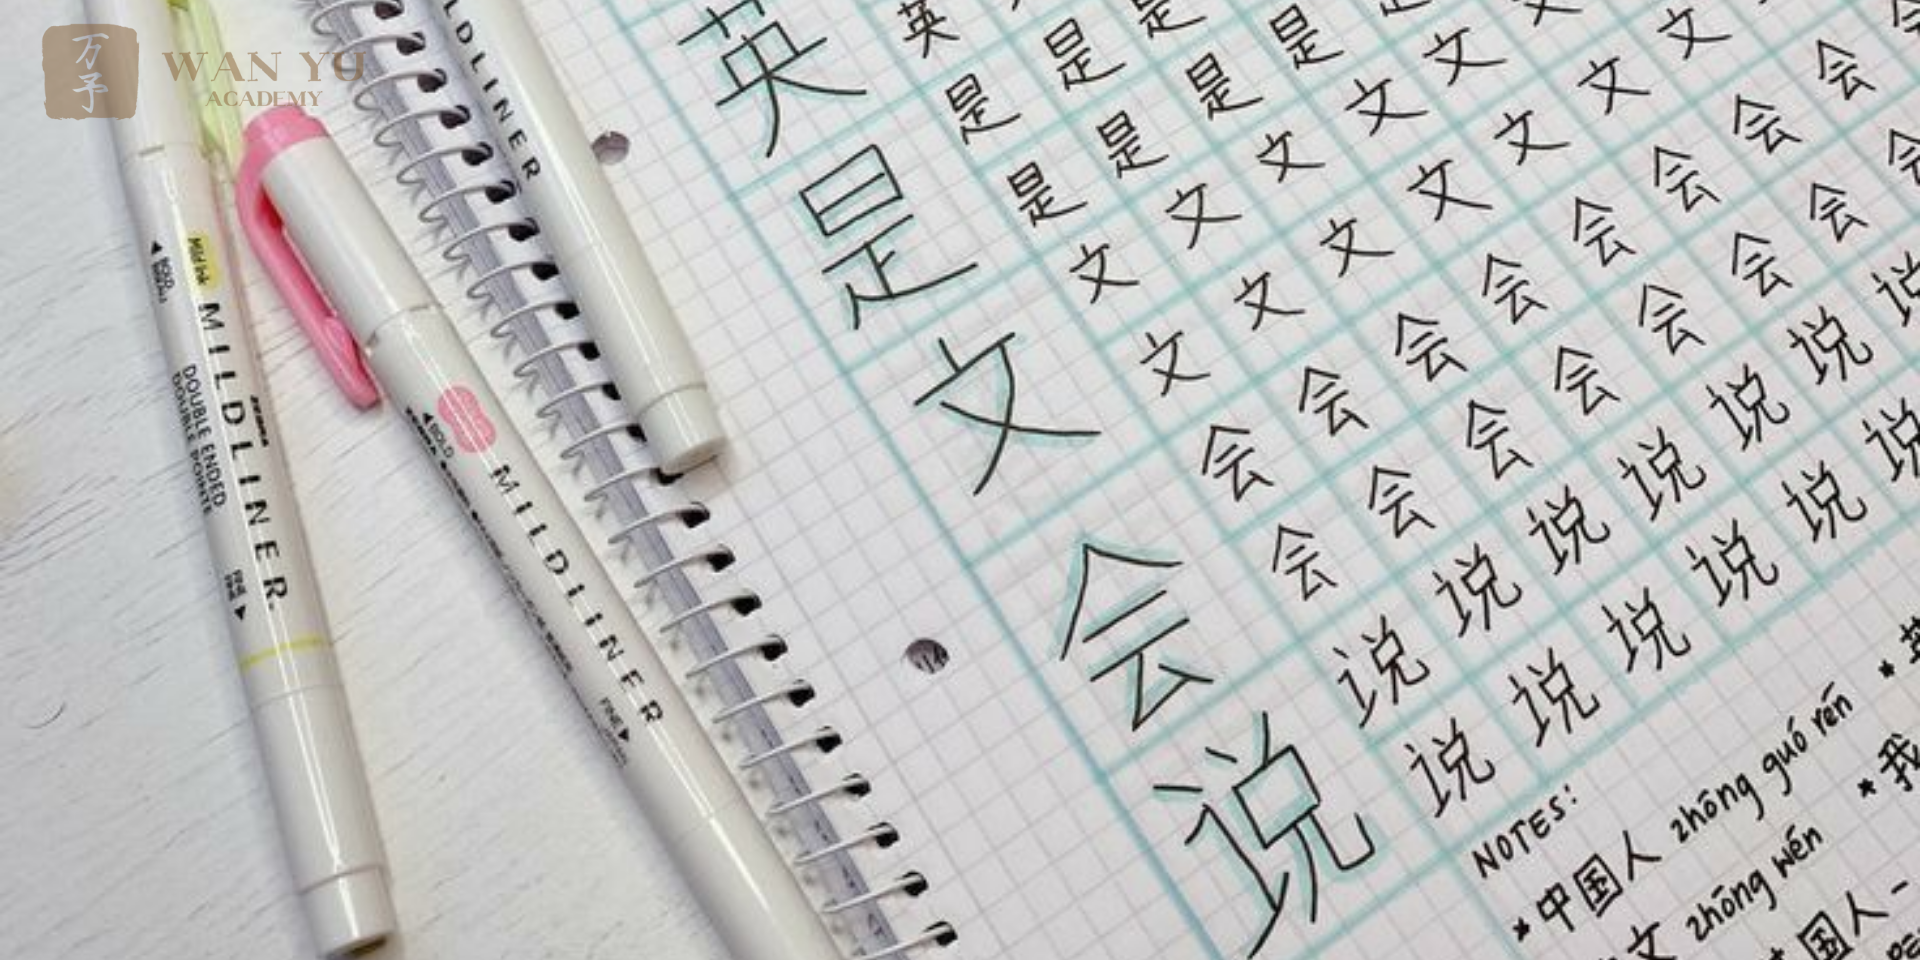 万予
WAN YU
ACADEMY
MILDLINER
Mild ink
BOLD
ZEBRA
MILDLINER
DOUBLE ENDED
DOUBLE POINTE
FINE
BOLD
MILDLINER
FINE
英 英
是 是 是 是
是 是 是 是
文 文 文 文 文 文
文 文 文 文 文 文 文
会 会 会 会 会 会 会 会 会
会 会 会 会 会 会 会 会
说 说 说 说 说 说 说 说
说 说 说 说 说 说
NOTES:
* 中国人 zhōng guó rén * 英
文 zhōng wén * 我
国人 -